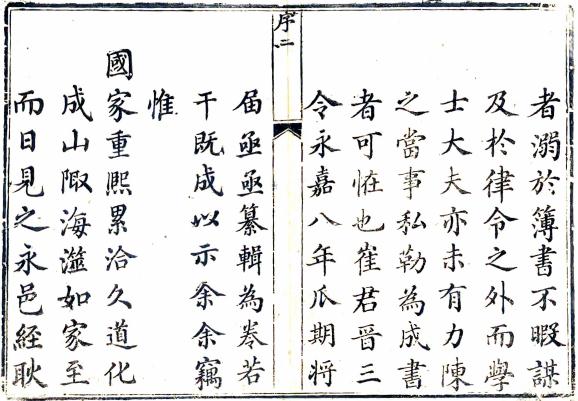 者溺於簿書不暇謀
及於律令之外而學
士大夫亦未有力陳
之當事私勒為成書
者可恠也崔君晉三
令永嘉八年瓜期將
序二
屆亟亟纂輯為卷若
干既成以示余余竊
惟
國家重熈累洽久道化
成山陬海澨如家至
而日見之永邑經耿